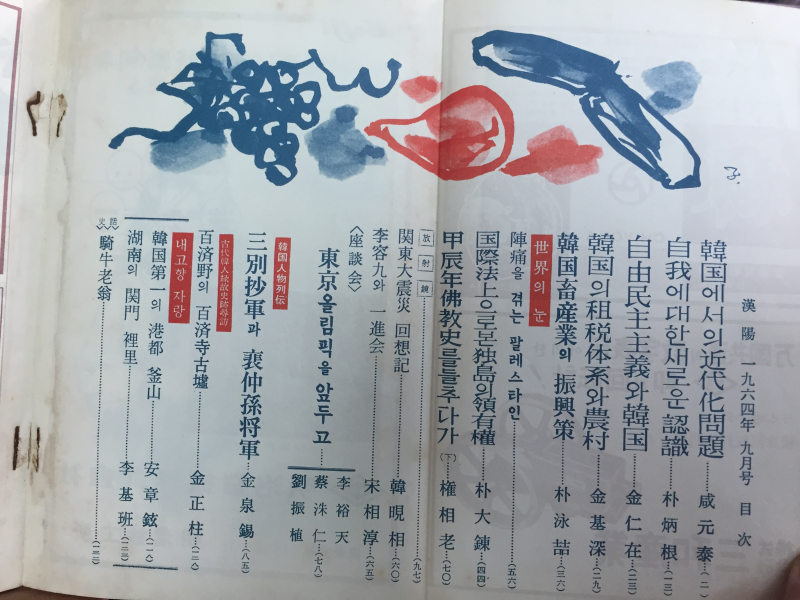 漢陽 一九六四年 九月号 目次
韓国에서의 近代化問題……咸元泰…(二)
自我에 대한 새로운 認識……朴炳根…(一三)
自由民主主義와 韓国……金仁在…(二三)
韓国의 租税体系와 農村……金基深…(二九)
韓国畜産業의 振興策……朴泳喆…(三六)
世界의 눈
陣痛을 겪는 팔레스타인……(五六)
国際法上으로 본 独島의 領有權……朴大錬…(四四)
甲辰年佛教史를 들추나가(下)……権相老…(七〇)
放射鏡……(九七)
関東大震災 回想記……韓晛相…(六〇)
李容九와 一進会……宋相淳…(六五)
〈座談会〉
東京올림픽을 앞두고……
李裕天
蔡洙仁…(七八)
劉振植
韓國人物列伝
三別抄軍과 裵仲孫将軍……金泉錫…(八五)
古代韓人故史跡尋訪
百済野의 百済寺古墟……金正柱…(一二八)
내고향 자랑
韓国第一의 港都 釜山……安章鉉…(一一八)
湖南의 関門 裡里……李基班…(一二三)
〈史話〉
騎牛老翁……(一三二)